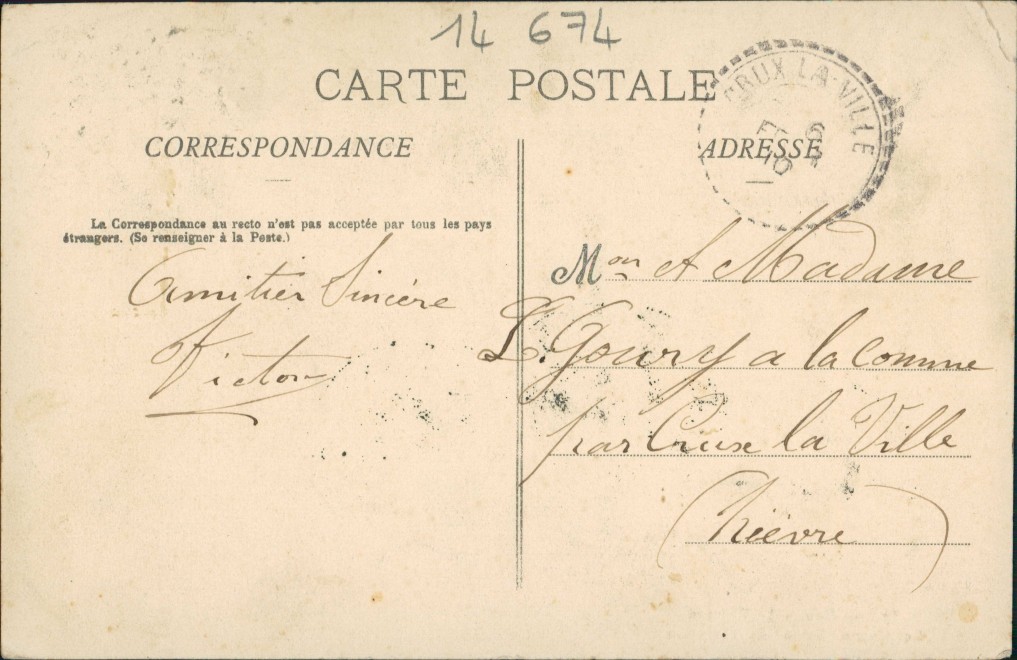 14 674
CARTE POSTALE
CRUX LA-VILLE
CORRESPONDANCE
ADRESSE
La Correspondance au recto n'est pas acceptée par tous les pays
étrangers. (Se renseigner à la Poste.)
Amitier Sincère
Victor
Mon et Madame
L. Goury a la comme
par Crux la Ville
(Nièvre)